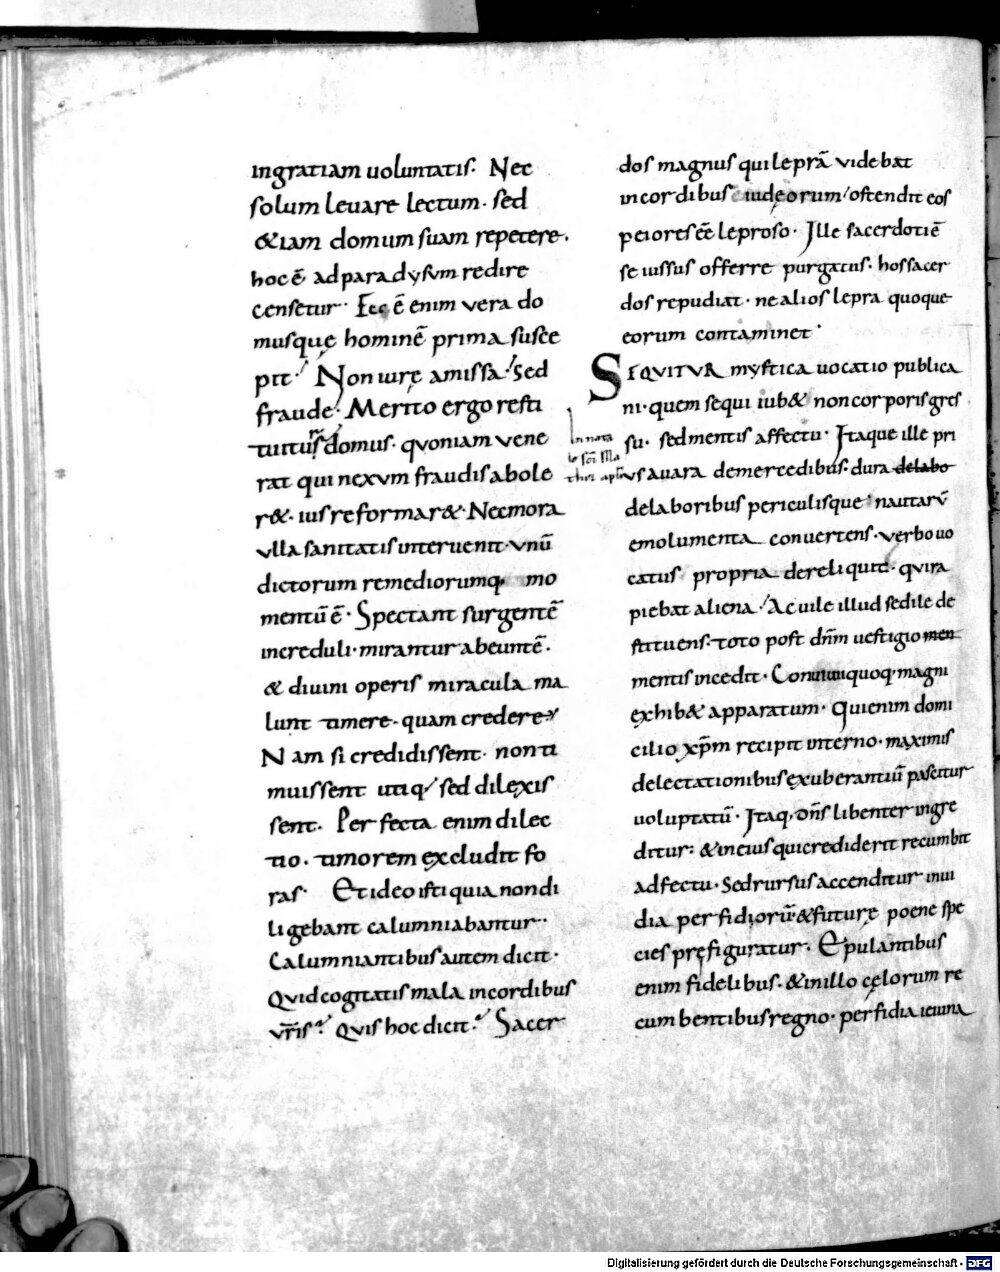 ingratiam uoluntatis. Nec
solum leuare lectum. sed
&iam domum suam repetere.
hoc ē adparadysum redire
censetur. Hec ē enim vera do
musque hominē prima susce
pit. Non iure amissa. Sed
fraude. Merito ergo resti
tuitur domus. quoniam vene
rat qui nexum fraudis abole
r&. ius reformar&. Nec mora
ulla sanitatis interuenit. unū
dictorum remediorumq; mo
mentū ē. Spectant surgentē
increduli. mirantur abeuntē.
& diuini operis miracula ma
lunt timere. quam credere.
Nam si credidissent. non ti
muissent utiq; sed dilexis
sent. Perfecta enim dilec
tio. timorem excludit fo
ras. Et ideo isti quia non di
ligebant calumniabantur.
Calumniantibus autem dicit.
Quid cogitatis mala incordibus
vr̄is? Quis hoc dicit? Sacer
dos magnus qui leprā videbat
incordibus iudęorum ostendit eos
peiores eē leproso. Ille sacerdotiē
se iussus offerre purgatus. hos sacer
dos repudiat. ne alios lepra quoque
eorum contaminet.
SEQVITVR mystica uocatio publica
ni. quem sequi iub& non corporis gres
su. sed mentis affectu. Itaque ille pri
us auara demercedibus. dura delabo
delaboribus periculisque nautarū
emolumenta conuertens. verbo uo
catus propria dereliquid. qui ra
piebat aliena. Ac uile illud sedile de
stituens. toto post dn̄m uestigio men
mentis incedit. Conuiuiiquoq; magni
exhib& apparatum. Qui enim domi
cilio xp̄m recipit interno. maximis
delectationibus exuberantiū pascitur
uoluptatū. Itaq; dn̄s libenter ingre
ditur: & in eius qui crediderit recumbit
adfectu. Sed rursus accenditur inui
dia perfidiorū. & futurę poene spe
cies pręfiguratur. Epulantibus
enim fidelibus. & in illo cęlorum re
cumbentibus regno. perfidia ieiuna
Digitalisierung gefördert durch die Deutsche Forschungsgemeinschaft - DFG